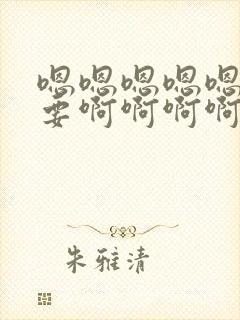 嗯嗯嗯嗯嗯
要啊啊啊啊
朱雅清